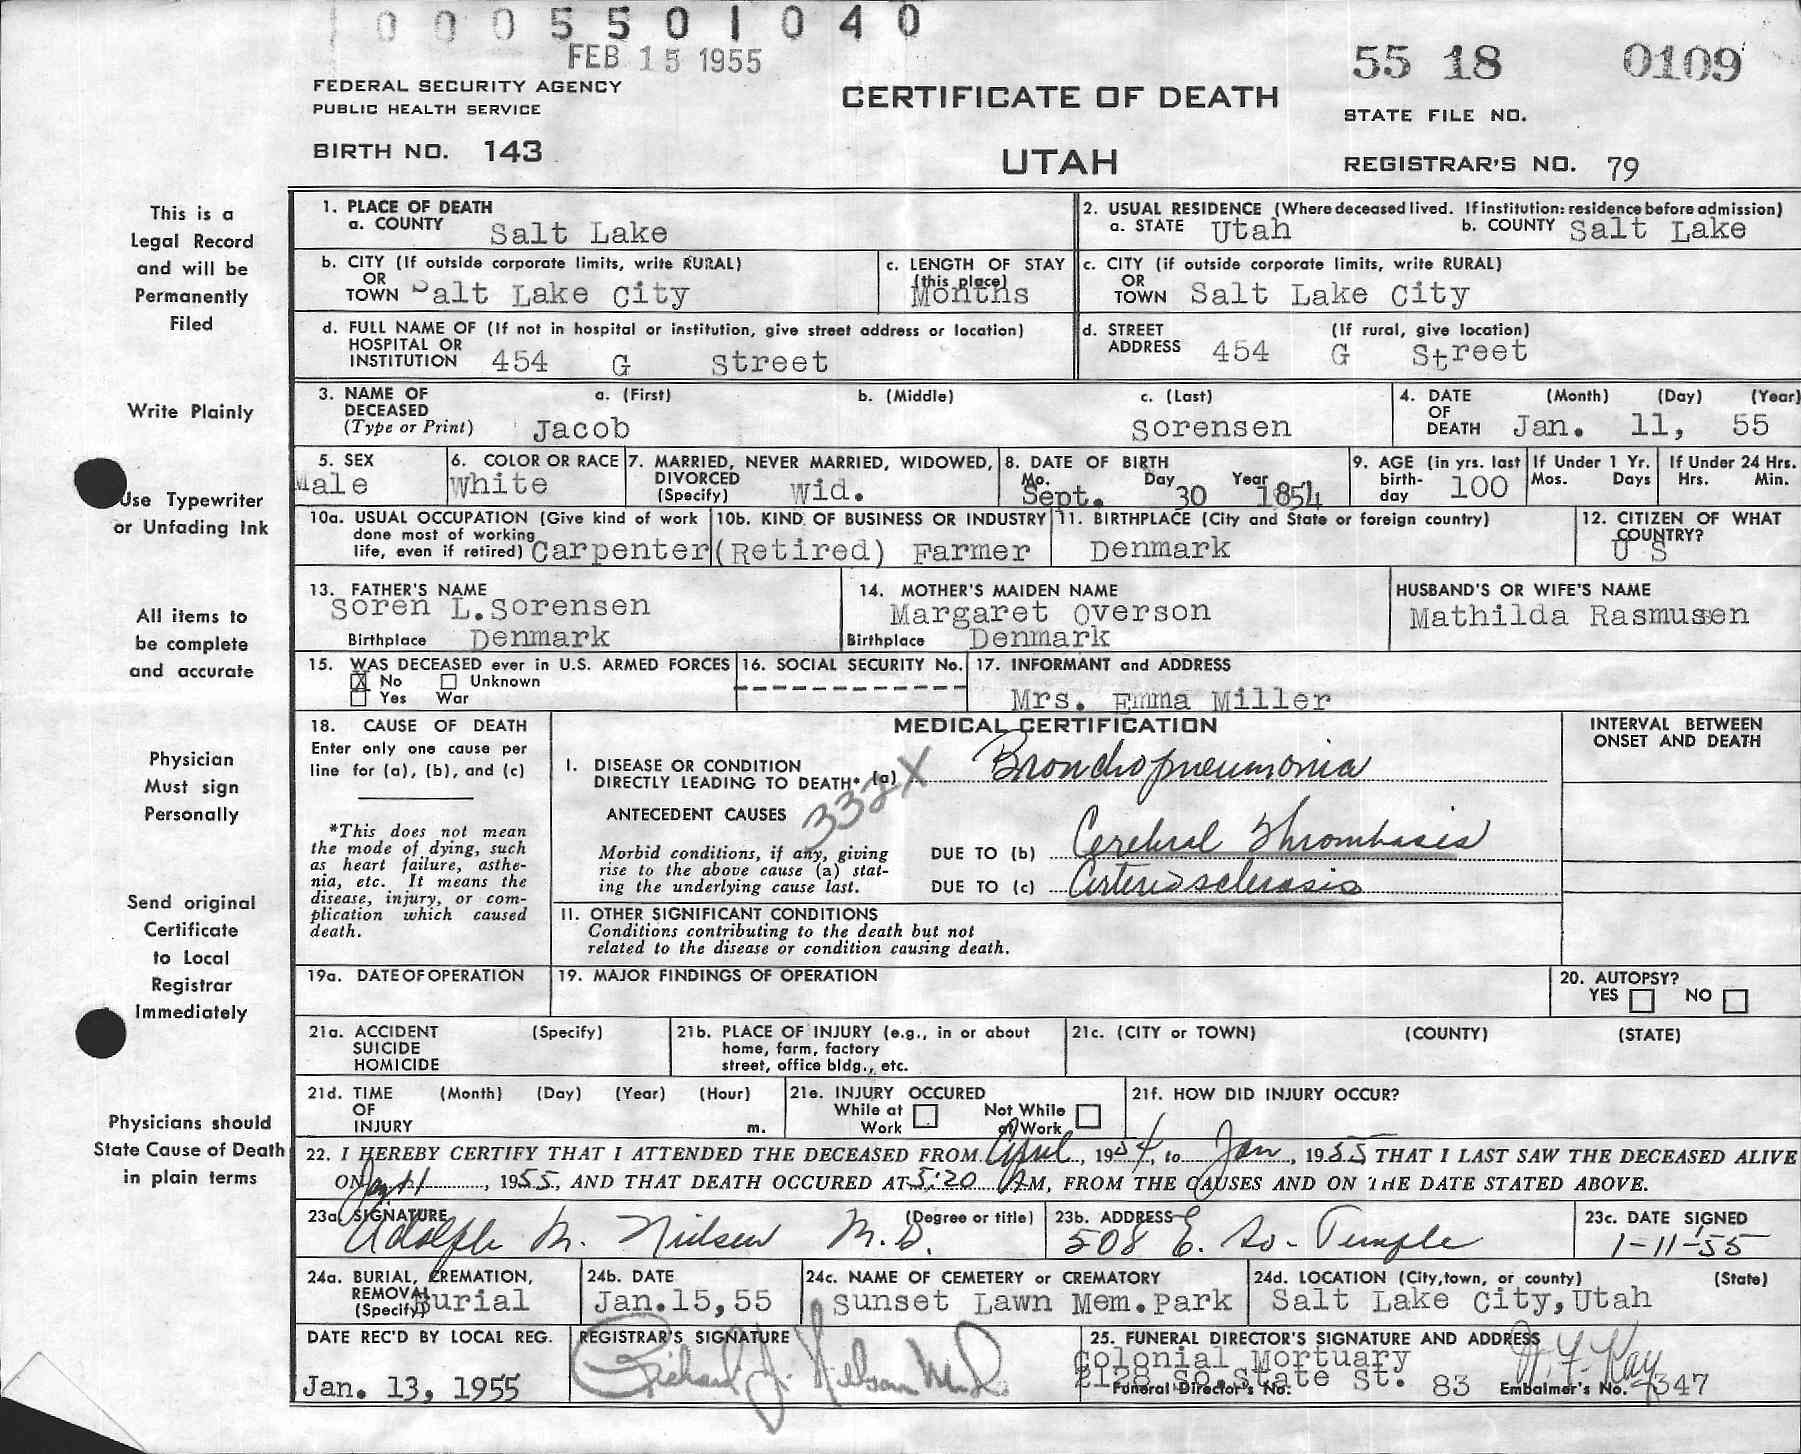 0005501040
FEB 15 1955
55 18 0109
FEDERAL SECURITY AGENCY
PUBLIC HEALTH SERVICE
CERTIFICATE OF DEATH
STATE FILE NO.
BIRTH NO. 143
UTAH
REGISTRAR'S NO. 79
This is a
Legal Record
and will be
Permanently
Filed
Write Plainly
Use Typewriter
or Unfading Ink
All items to
be complete
and accurate
Physician
Must sign
Personally
Send original
Certificate
to Local
Registrar
Immediately
Physicians should
State Cause of Death
in plain terms
1. PLACE OF DEATH
a. COUNTY Salt Lake
2. USUAL RESIDENCE (Where deceased lived. If institution: residence before admission)
a. STATE Utah b. COUNTY Salt Lake
b. CITY (If outside corporate limits, write RURAL)
OR
TOWN Salt Lake City
c. LENGTH OF STAY
(this place)
Months
c. CITY (if outside corporate limits, write RURAL)
OR
TOWN Salt Lake City
d. FULL NAME OF (If not in hospital or institution, give street address or location)
HOSPITAL OR
INSTITUTION 454 G Street
d. STREET (If rural, give location)
ADDRESS 454 G Street
3. NAME OF a. (First) b. (Middle) c. (Last)
DECEASED
(Type or Print) Jacob Sorensen
4. DATE (Month) (Day) (Year)
OF
DEATH Jan. 11, 55
5. SEX
Male
6. COLOR OR RACE
White
7. MARRIED, NEVER MARRIED, WIDOWED,
DIVORCED
(Specify) Wid.
8. DATE OF BIRTH
Mo. Day Year
Sept. 30 1854
9. AGE (in yrs. last
birth-
day 100
If Under 1 Yr.
Mos. Days
If Under 24 Hrs.
Hrs. Min.
10a. USUAL OCCUPATION (Give kind of work
done most of working
life, even if retired) Carpenter
10b. KIND OF BUSINESS OR INDUSTRY
(Retired) Farmer
11. BIRTHPLACE (City and State or foreign country)
Denmark
12. CITIZEN OF WHAT
COUNTRY?
U S
13. FATHER'S NAME
Soren L.Sorensen
Birthplace Denmark
14. MOTHER'S MAIDEN NAME
Margaret Overson
Birthplace Denmark
HUSBAND'S OR WIFE'S NAME
Mathilda Rasmusen
15. WAS DECEASED ever in U.S. ARMED FORCES
X No Unknown
Yes War
16. SOCIAL SECURITY No.
17. INFORMANT and ADDRESS
Mrs. Emma Miller
18. CAUSE OF DEATH
Enter only one cause per
line for (a), (b), and (c)
*This does not mean
the mode of dying, such
as heart failure, asthe-
nia, etc. It means the
disease, injury, or com-
plication which caused
death.
MEDICAL CERTIFICATION
I. DISEASE OR CONDITION
DIRECTLY LEADING TO DEATH* (a) Bronchopneumonia
332X
ANTECEDENT CAUSES
Morbid conditions, if any, giving
rise to the above cause (a) stat-
ing the underlying cause last.
DUE TO (b) Cerebral Thrombosis
DUE TO (c) Arteriosclerosis
II. OTHER SIGNIFICANT CONDITIONS
Conditions contributing to the death but not
related to the disease or condition causing death.
INTERVAL BETWEEN
ONSET AND DEATH
19a. DATE OF OPERATION
19. MAJOR FINDINGS OF OPERATION
20. AUTOPSY?
YES NO
21a. ACCIDENT (Specify)
SUICIDE
HOMICIDE
21b. PLACE OF INJURY (e.g., in or about
home, farm, factory
street, office bldg., etc.
21c. (CITY or TOWN) (COUNTY) (STATE)
21d. TIME (Month) (Day) (Year) (Hour)
OF
INJURY m.
21e. INJURY OCCURED
While at Not While
Work at Work
21f. HOW DID INJURY OCCUR?
22. I HEREBY CERTIFY THAT I ATTENDED THE DECEASED FROM April, 1954, to Jan, 1955 THAT I LAST SAW THE DECEASED ALIVE
ON Jan 11, 1955, AND THAT DEATH OCCURED AT 5:20 AM, FROM THE CAUSES AND ON THE DATE STATED ABOVE.
23a. SIGNATURE (Degree or title)
Adolph M. Nielsen M.D.
23b. ADDRESS
508 E. So. Temple
23c. DATE SIGNED
1-11-55
24a. BURIAL, CREMATION,
REMOVAL
(Specify) Burial
24b. DATE
Jan.15,55
24c. NAME OF CEMETERY or CREMATORY
Sunset Lawn Mem.Park
24d. LOCATION (City, town, or county) (State)
Salt Lake City,Utah
DATE REC'D BY LOCAL REG.
Jan. 13, 1955
REGISTRAR'S SIGNATURE
Richard J. Nelson M.D.
25. FUNERAL DIRECTOR'S SIGNATURE AND ADDRESS
Colonial Mortuary
2128 So.State St.
Funeral Director's No. 83 Embalmer's No. 347